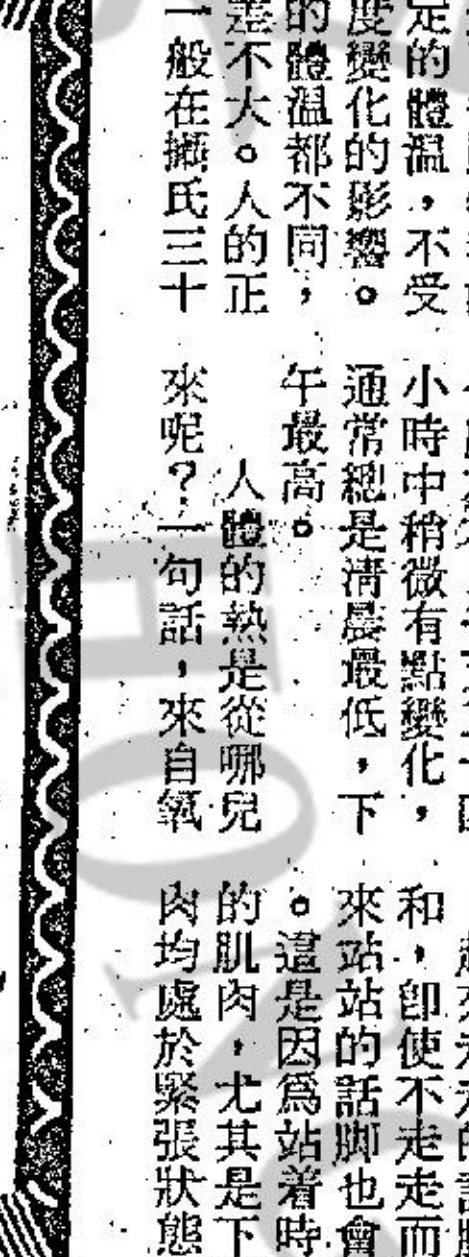 定的體溫，不受
度變化的影響。
的體溫都不同，
差不大。人的正
一般在攝氏三十
小時中稍微有點變化，
通常總是清晨最低，下
午最高。
人體的熱是從哪兒
來呢？一句話，來自氧
和，卽使不走走而
來站站的話脚也會
。這是因爲站着時
的肌肉，尤其是下
肉均處於緊張狀態